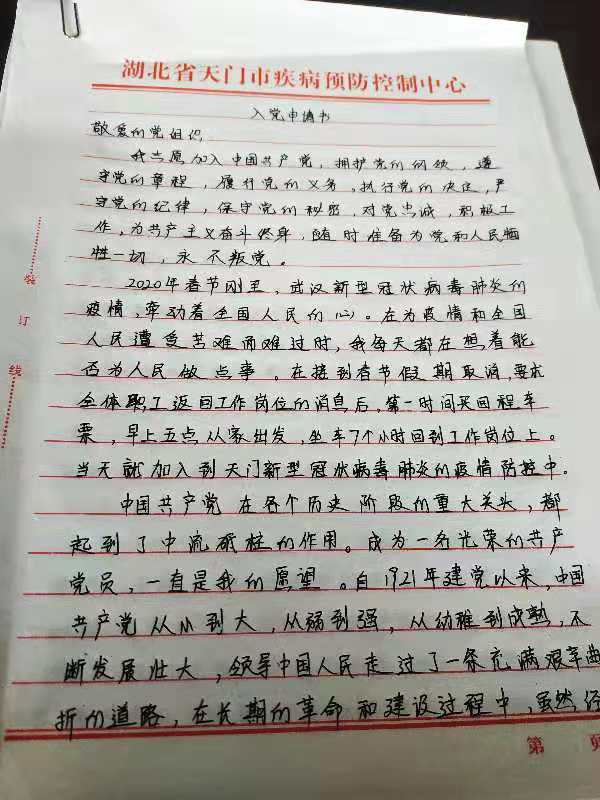 湖北省天门市疾病预防控制中心
入党申请书
敬爱的党组织,
我志愿加入中国共产党,拥护党的纲领,遵
守党的章程,履行党的义务,执行党的决定,严
守党的纪律,保守党的秘密,对党忠诚,积极工
作,为共产主义奋斗终身,随时准备为党和人民牺
牲一切,永不叛党。
2020年春节刚至,武汉新型冠状病毒肺炎的
疫情,牵动着全国人民的心。在为疫情和全国
人民遭受苦难而难过时,我每天都在想着能
否为人民做点事。在接到春节假期取消,要求
全体职工返回工作岗位的消息后,第一时间买回程车
票,早上五点从家出发,坐车7个小时回到工作岗位上。
当天就加入到天门新型冠状病毒肺炎的疫情防控中。
中国共产党在各个历史阶段的重大关头,都
起到了中流砥柱的作用。成为一名光荣的共产
党员,一直是我的愿望。自1921年建党以来,中国
共产党从小到大,从弱到强,从幼稚到成熟,不
断发展壮大,领导中国人民走过了一条充满艰辛曲
折的道路,在长期的革命和建设过程中,虽然经
装
订
线
第 页